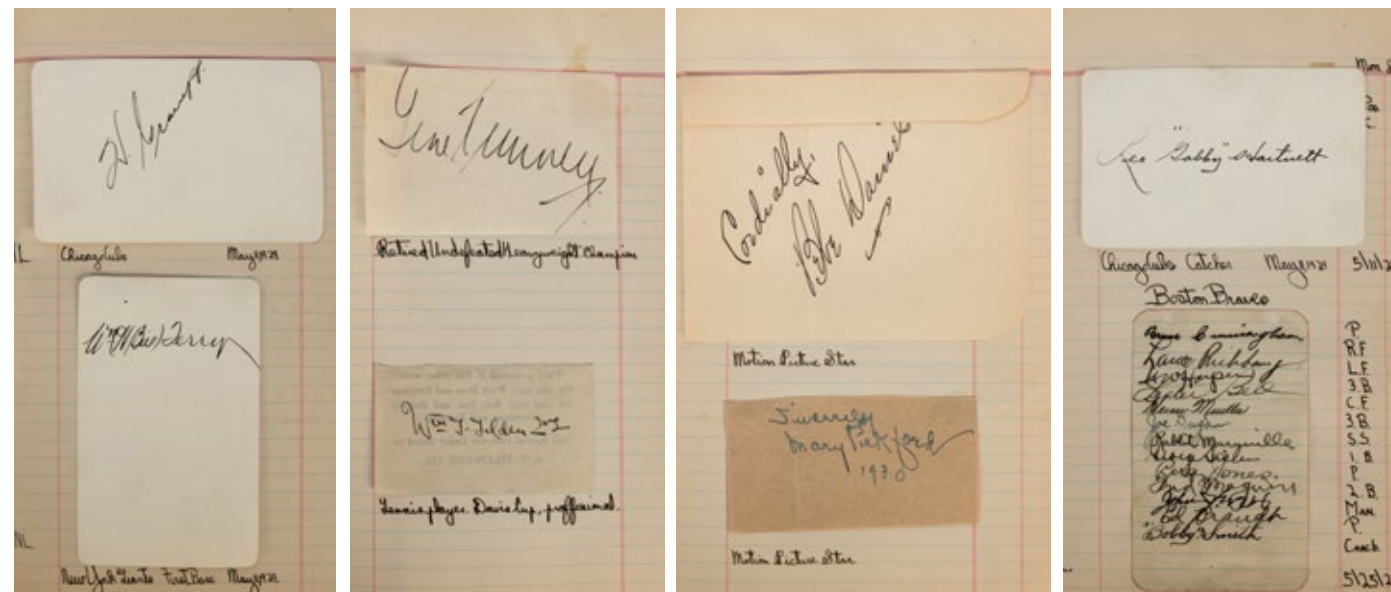 Chicago Cubs May 8, 1929
Wm H (Bill) Terry
New York Giants First Base May 8, 1929
NL
Gene Tunney
Retired Undefeated Heavyweight Champion
Wm T. Tilden 2nd
Tennis player. Davis Cup, proffesional.
Cordially,
Bebe Daniels
Motion Picture Star
Sincerely
Mary Pickford
1930
Motion Picture Star
Leo "Gabby" Hartnett
Chicago Cubs Catcher May 8, 1929
Boston Braves
Bruce Cunningham P.
Lance Richbourg R.F.
Geo Harper L.F.
Lester Bell 3.B.
Heinie Mueller C.F.
Joe Dugan 3.B.
Rabbit Maranville S.S.
George Sisler 1.B.
Percy Jones. P.
Fred Maguire 2.B.
Man.
Ed Brandt P.
"Bobby" Smith
Coach